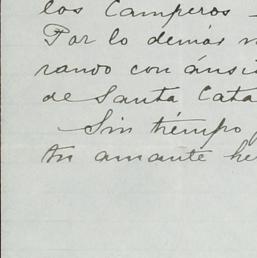 los Camperos -
Por lo demás
rando con ánsi
de Santa Cata
Sin tiempo
tu amante he